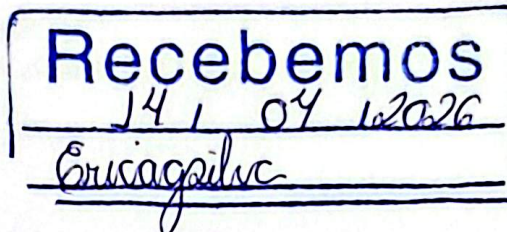 Recebemos
14 / 04 / 2026
Ericagsilva